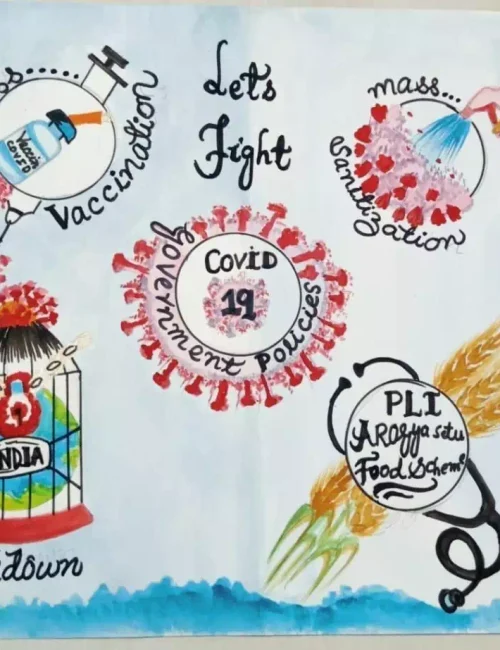 Let's
Fight
Vaccine
COVID
Vaccination
mass...
Sanitization
COVID
19
Government Policies
INDIA
PLI
Arogya setu
Food Scheme